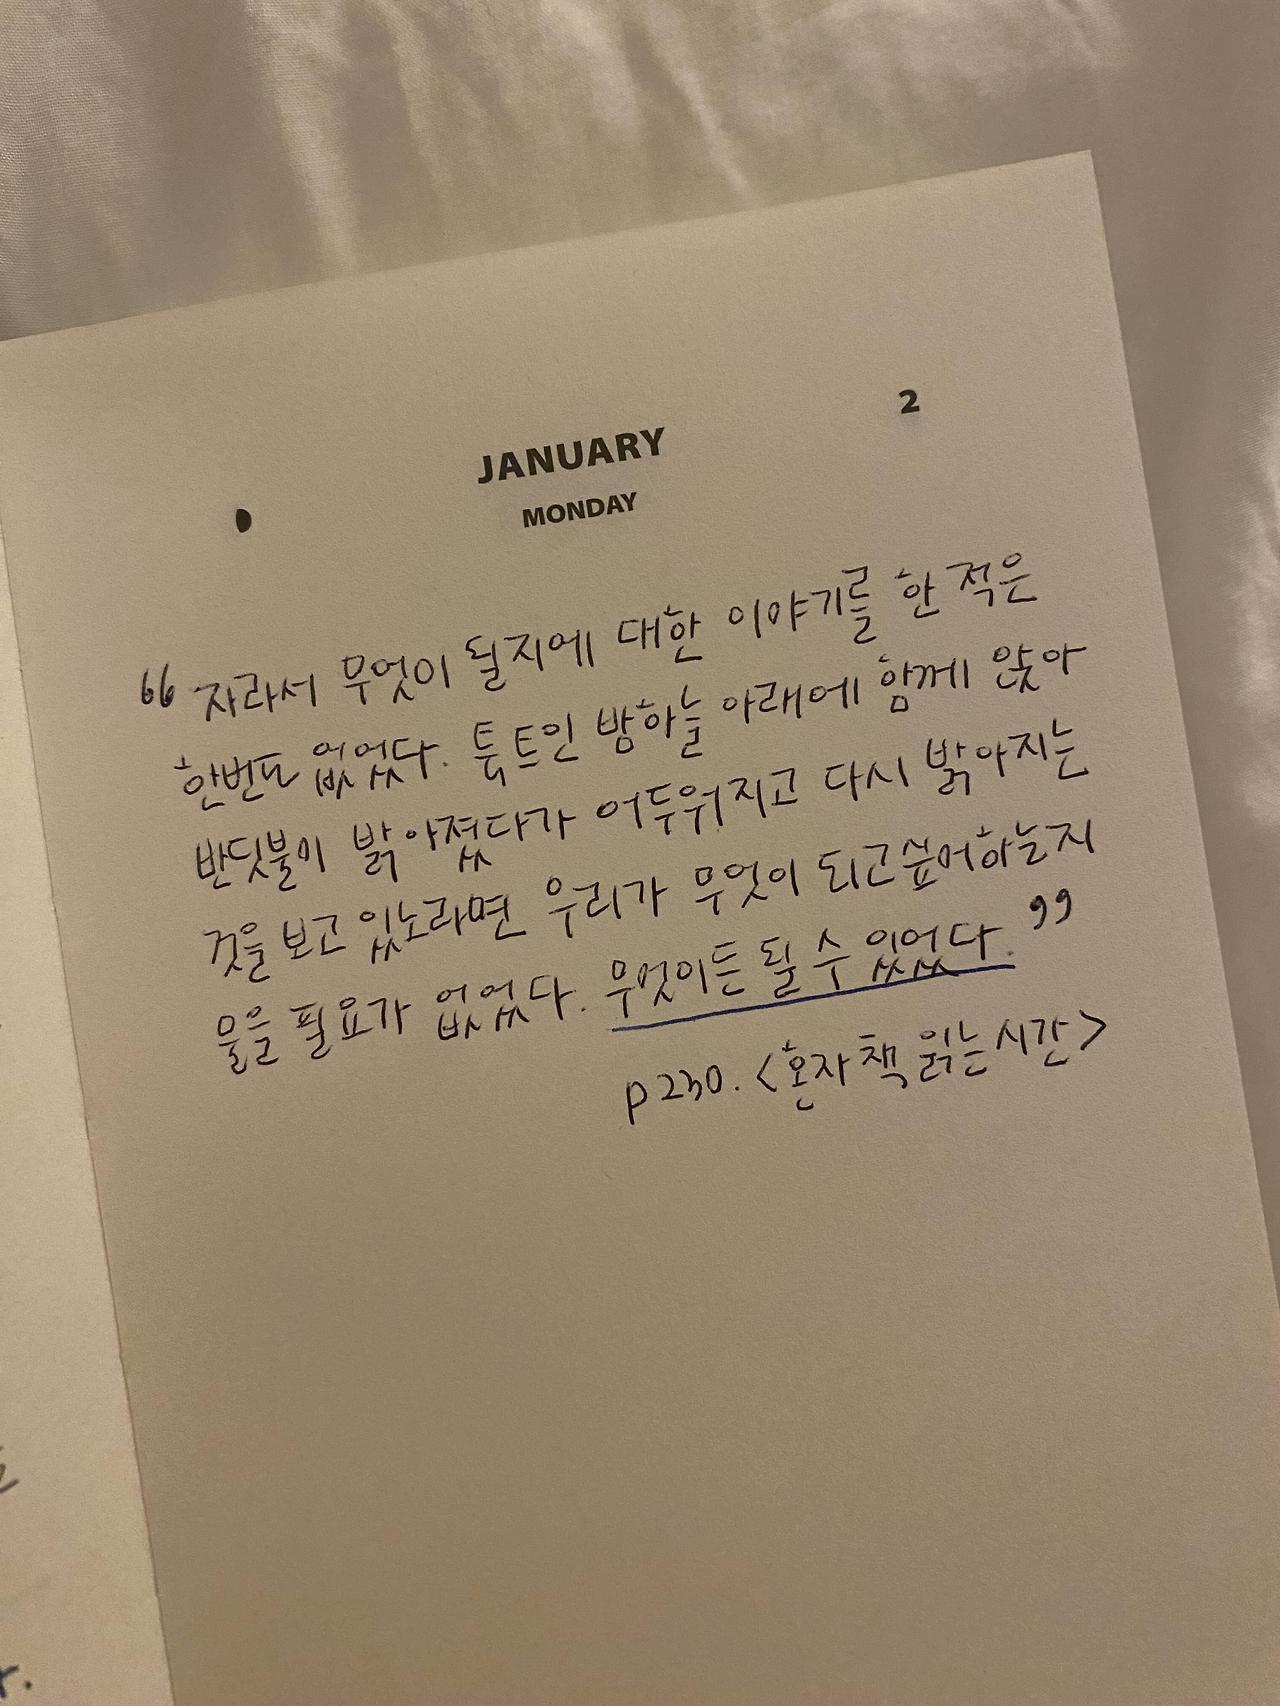 2
JANUARY
MONDAY
❝ 자라서 무엇이 될지에 대한 이야기를 한 적은
한번도 없었다. 툭 트인 밤하늘 아래에 함께 앉아
반딧불이 밝아졌다가 어두워지고 다시 밝아지는
것을 보고 있노라면 우리가 무엇이 되고싶어하는지
물을 필요가 없었다. 무엇이든 될 수 있었다. ❞
p230. <혼자 책 읽는 시간>